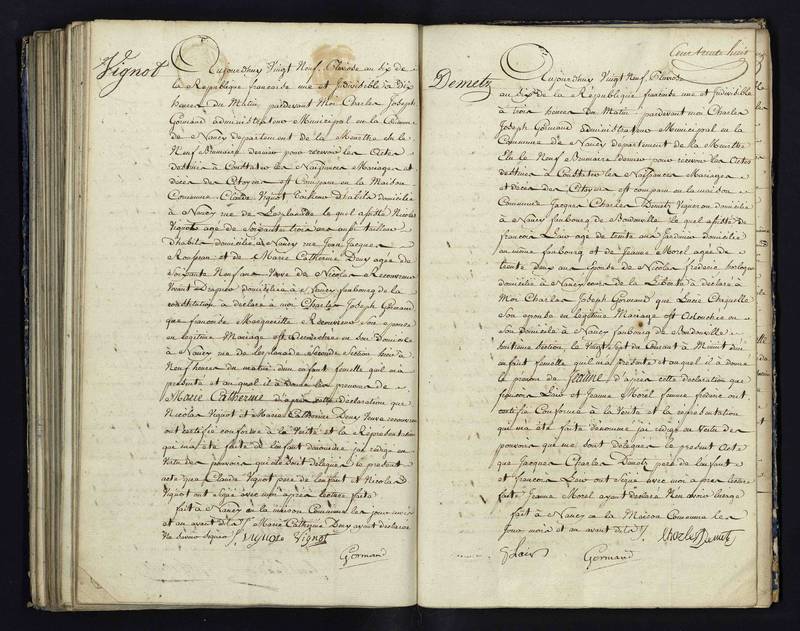 Vignot
Aujourd'huy Vingt Neuf Pluviose an six de
la République francoise une et Indivisible à Dix
heures Du Matin pardevant Moi Charles Joseph
Germand administrateur Municipal en la Commune
de Nancy département de la Meurthe elu le
Neuf Brumaire dernier pour recevoir les Actes
destinés à Constater les Naissances Mariages et
décès des Citoyens est Comparu en la Maison
Commune Claude Vignot Tailleur d'habits domicilié
à Nancy rue de Lesplanade le quel assisté Nicolas
Vignot age de Soixante trois ans aussi Tailleur
d'habits domicilié à Nancy rue Jean Jacques
Rousseau et de Marie Catherine Deny agée de
Soixante Neuf ans Veuve de Nicolas Recouvreur
Vivant Drapier domiciliée à Nancy faubourg de la
constitution a déclaré à moi Charles Joseph Germand
que francoise Margueritte Recouvreur Son epouse
en légitime Mariage est accouchée en son domicile
à Nancy rue de Lesplanade Seconde Section hier à
Neuf heures du matin d'un enfant femelle qui m'a
présenté et au quel il à donné les prenoms de
Marie Catherine d'après cette déclaration que
Nicolas Vignot et Marie Catherine Deny Veuve recouvreur
ont certifié conforme à la Vérité et la Représentation
qui m'a été faite de l'enfant dénommé j'ai rédigé en
Vertu des pouvoirs qui me sont délégués le présent
acte que Claude Vignot pere de l'enfant et Nicolas
Vignot ont signé avec moi après lecture faite
fait à Nancy en la maison Commune les jour mois
et an avant dits Marie Catherine Deny ayant déclaré
Ne savoir signer Vignot Vignot
Germand
Cent trente huit
Demetz
Aujourdhuy Vingt Neuf Pluviose
an six de la République francoise une et Indivisible
à trois heures du Matin pardevant moi Charles
Joseph Germand administrateur Municipal en la
Commune de Nancy département de la Meurthe
Elu le Neuf Brumaire dernier pour recevoir les Actes
destinés à Constater les Naissances Mariages
et décès des Citoyens est comparu en la maison
Commune Jacques Charles Demetz Vigneron domicilié
à Nancy faubourg de Boudonville le quel assisté de
francois Laix age de trente ans Jardinier domicilié
au même faubourg et de Jeanne Morel agée de
trente deux ans Epouse de Nicolas frédéric horloger
domicilié à Nancy cours de la Liberté à déclaré à
Moi Charles Joseph Germand que Lucie Chapelle
Son epouse en légitime Mariage est accouchée en
son Domicile à Nancy faubourg de Boudonville
huitieme Section le Vingt Sept du Courant à Minuit d'un
enfant femelle qu'il m'a présenté et auquel il à donné
le prenom de Jeanne d'après cette déclaration que
francois Laix et Jeanne Morel femme frédéric ont
certifié Conforme à la Vérité et la représentation
qui m'a été faite dénommé j'ai rédigé en Vertu des
pouvoirs qui me sont délégués le présent Acte
que Jacques Charles Demetz pere de l'enfant
et francois Laix ont signé avec moi après lecture
faite Jeanne Morel ayant déclaré N'en avoir l'usage
fait à Nancy en la Maison Commune les
Jour mois et an avant dits Charles Demetz
f Laix Germand